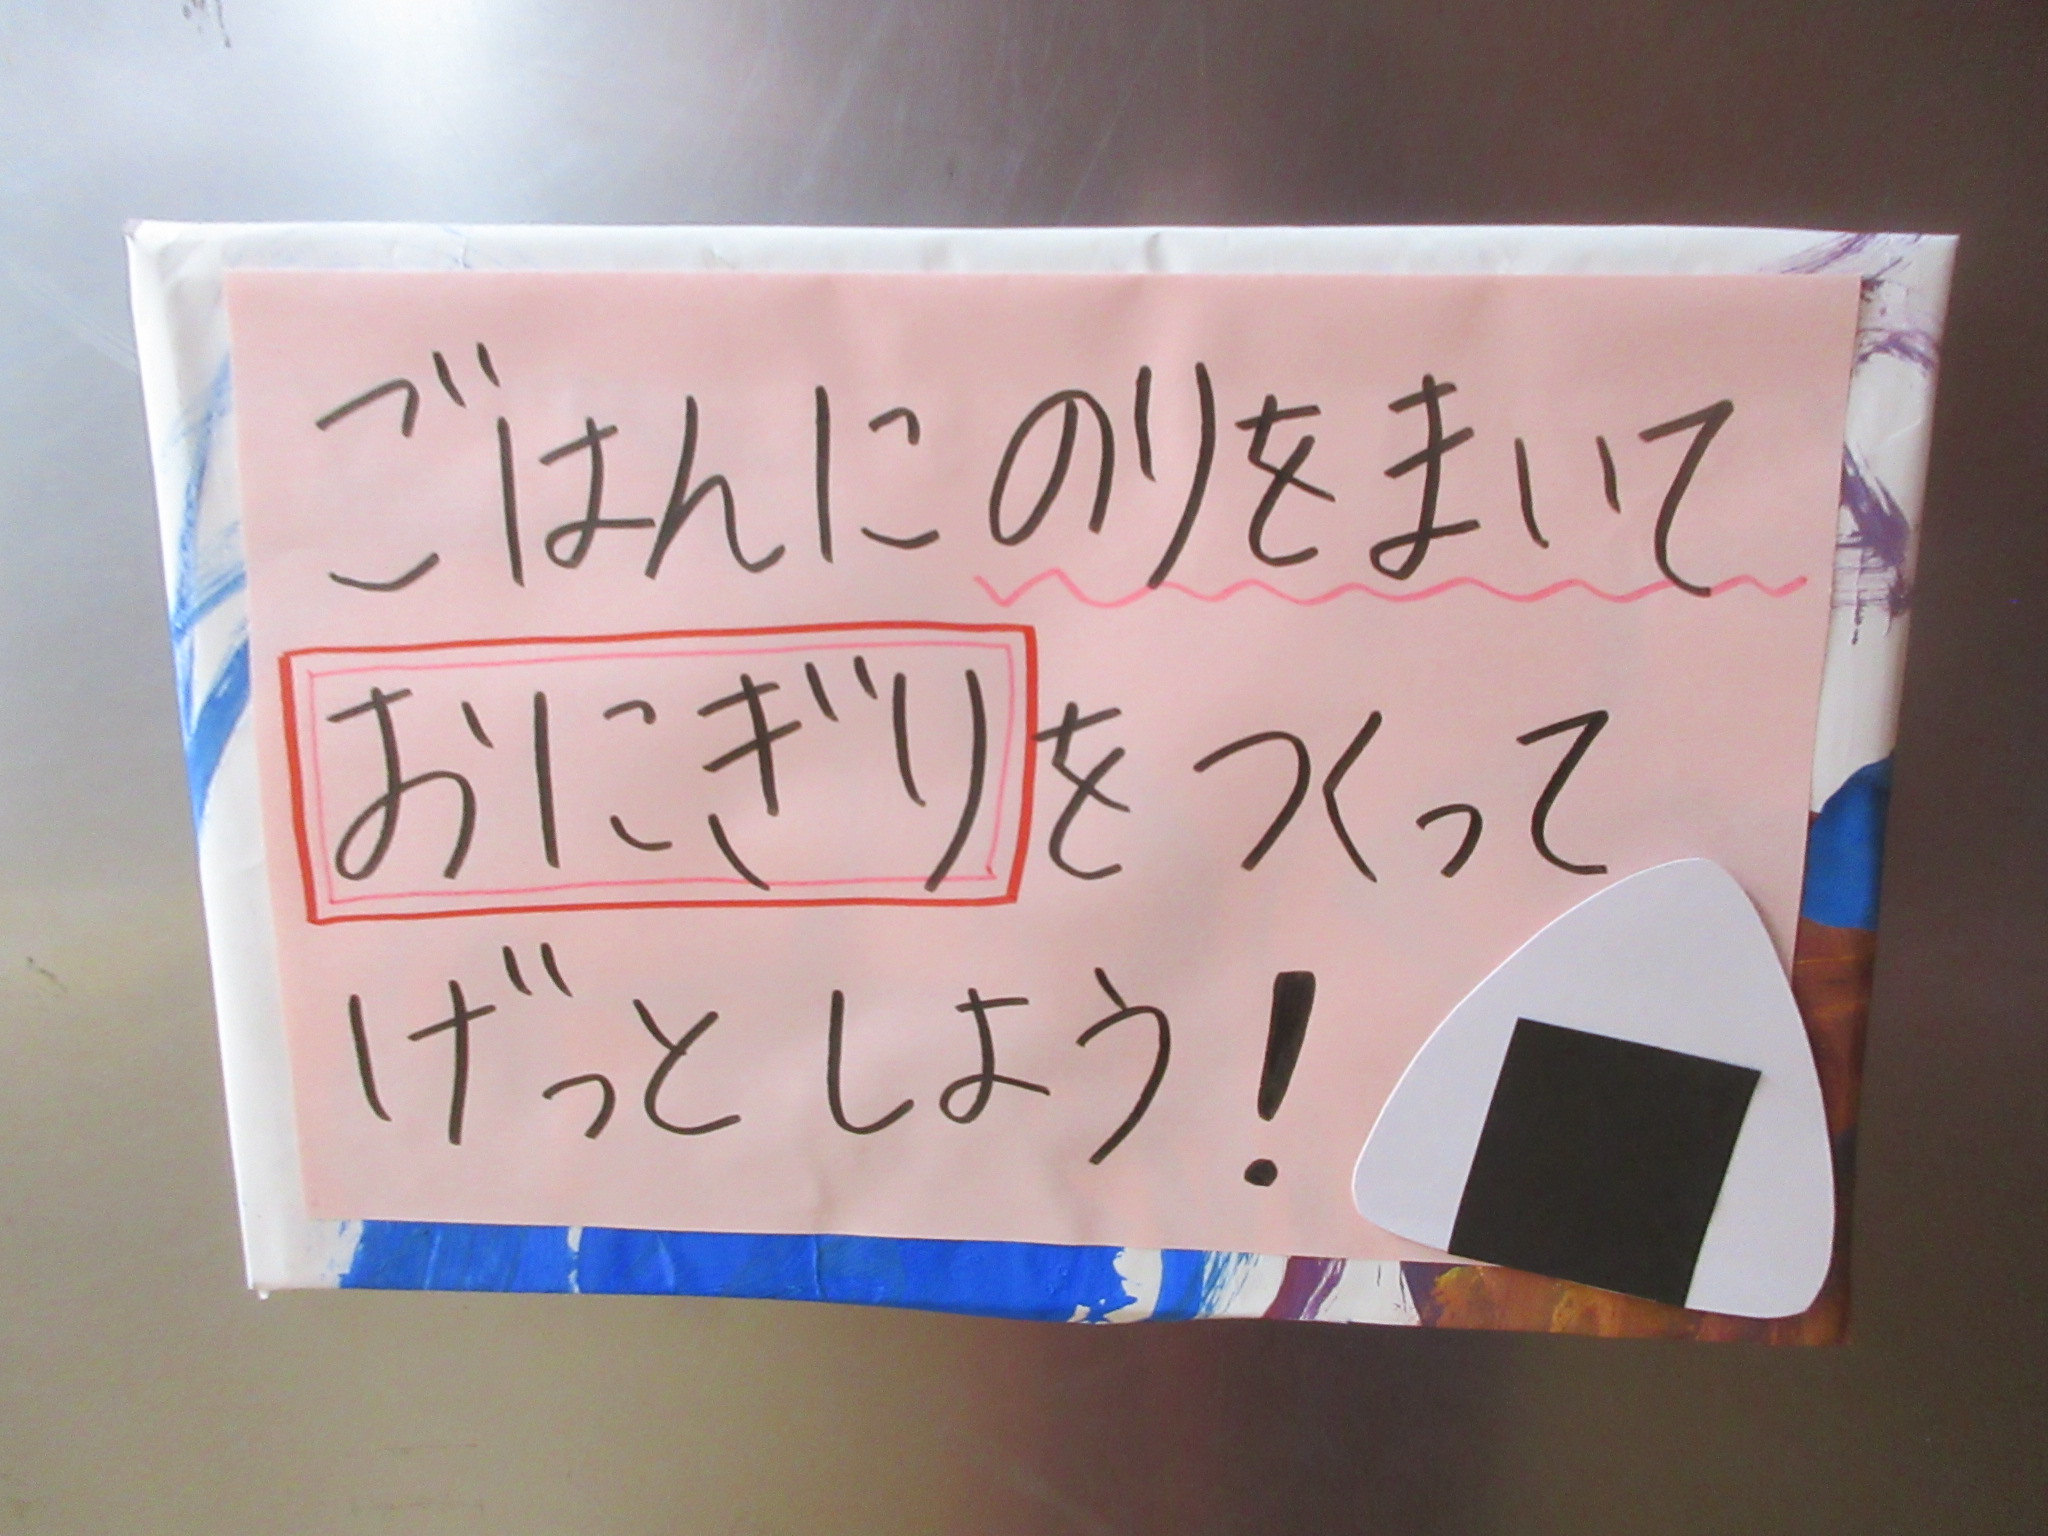 ごはんにのりをまいて
おにぎりをつくって
げっとしよう!